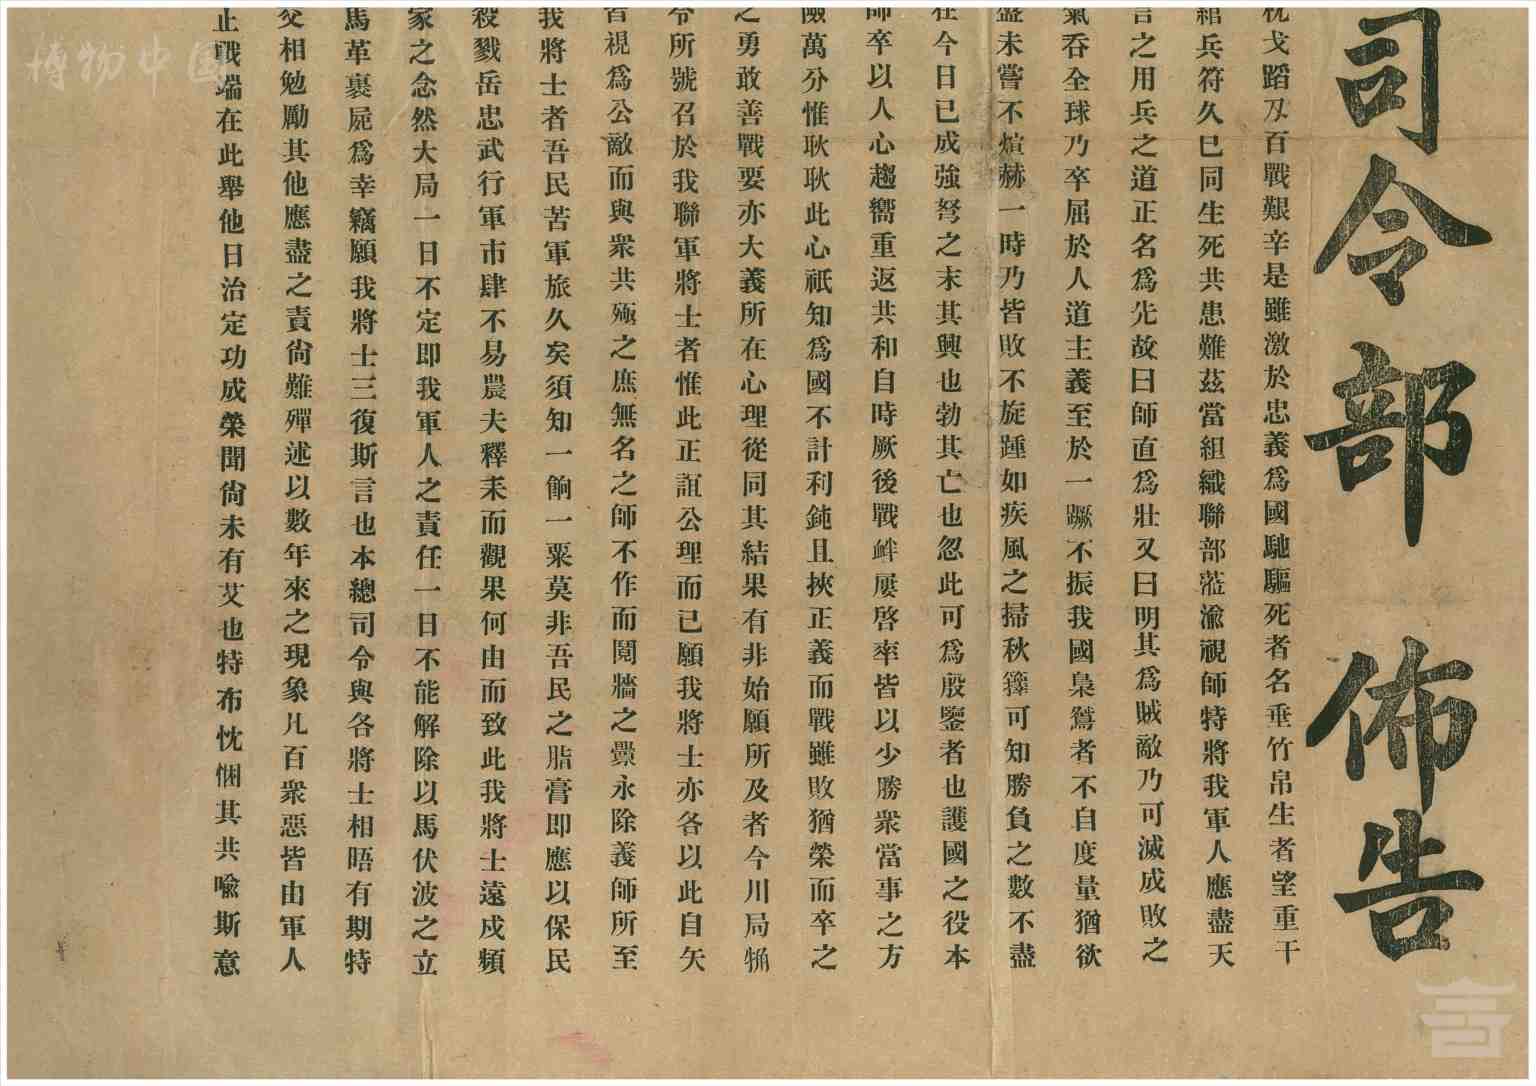 司令部佈告
枕戈蹈刄百戰艱辛是雖激於忠義爲國馳驅死者名垂竹帛生者望重干
綰兵符久巳同生死共患難茲當組織聯部蒞渝視師特將我軍人應盡天
言之用兵之道正名爲先故曰師直爲壯又曰明其爲賊敵乃可滅成敗之
氣吞全球乃卒屈於人道主義至於一蹶不振我國梟鷙者不自度量猶欲
盛未嘗不煊赫一時乃皆敗不旋踵如疾風之掃秋籜可知勝負之數不盡
在今日已成強弩之末其興也勃其亡也忽此可爲殷鑒者也護國之役本
師卒以人心趨嚮重返共和自時厥後戰衅屢啓率皆以少勝衆當事之方
險萬分惟耿耿此心祇知爲國不計利鈍且挾正義而戰雖敗猶榮而卒之
之勇敢善戰要亦大義所在心理從同其結果有非始願所及者今川局
令所號召於我聯軍將士者惟此正誼公理而已願我將士亦各以此自矢
者視爲公敵而與衆共殛之庶無名之師不作而鬩牆之釁永除義師所至
我將士者吾民苦軍旅久矣須知一餉一粟莫非吾民之脂膏即應以保民
殺戮岳忠武行軍市肆不易農夫釋耒而觀果何由而致此我將士遠戍頻
家之念然大局一日不定即我軍人之責任一日不能解除以馬伏波之立
馬革裹屍爲幸竊願我將士三復斯言也本總司令與各將士相晤有期特
交相勉勵其他應盡之責尙難殫述以數年來之現象凡百衆惡皆由軍人
止戰端在此舉他日治定功成榮聞尙未有艾也特布忱悃其共喻斯意
博物中国